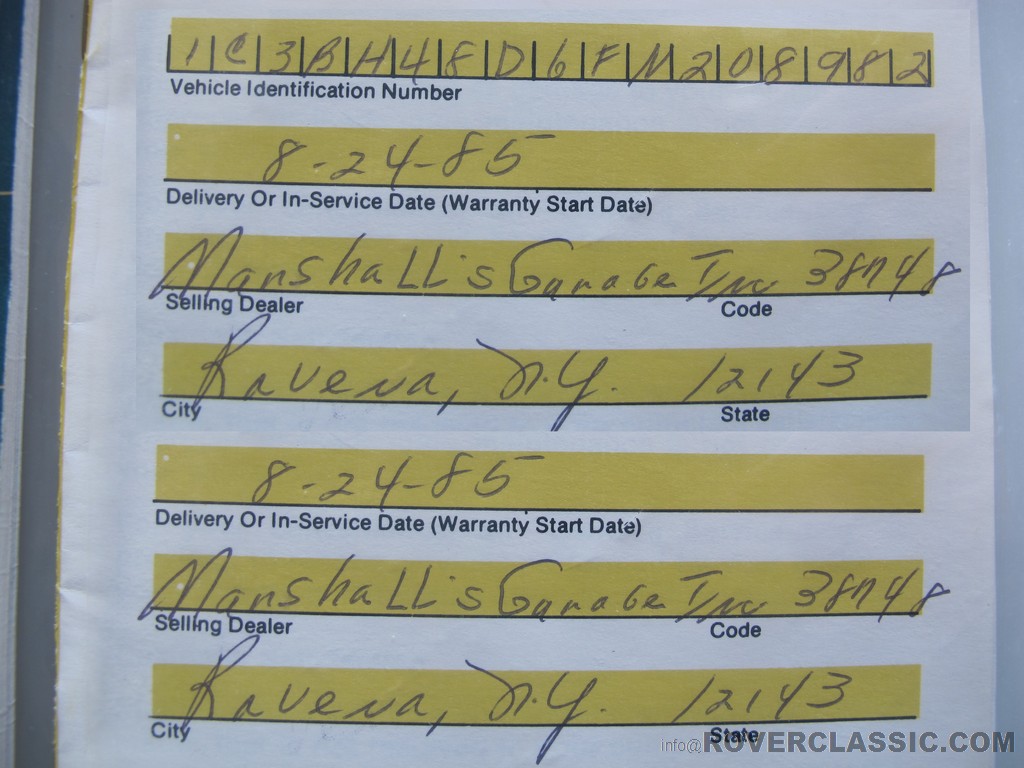 1C3BH48D6FM208982
Vehicle Identification Number
8-24-85
Delivery Or In-Service Date (Warranty Start Date)
Marshall's Garage Inc 38748
Selling Dealer Code
Ravena, N.Y. 12143
City State
8-24-85
Delivery Or In-Service Date (Warranty Start Date)
Marshall's Garage Inc 38748
Selling Dealer Code
Ravena, N.Y. 12143
City State
Info@ROVERCLASSIC.COM